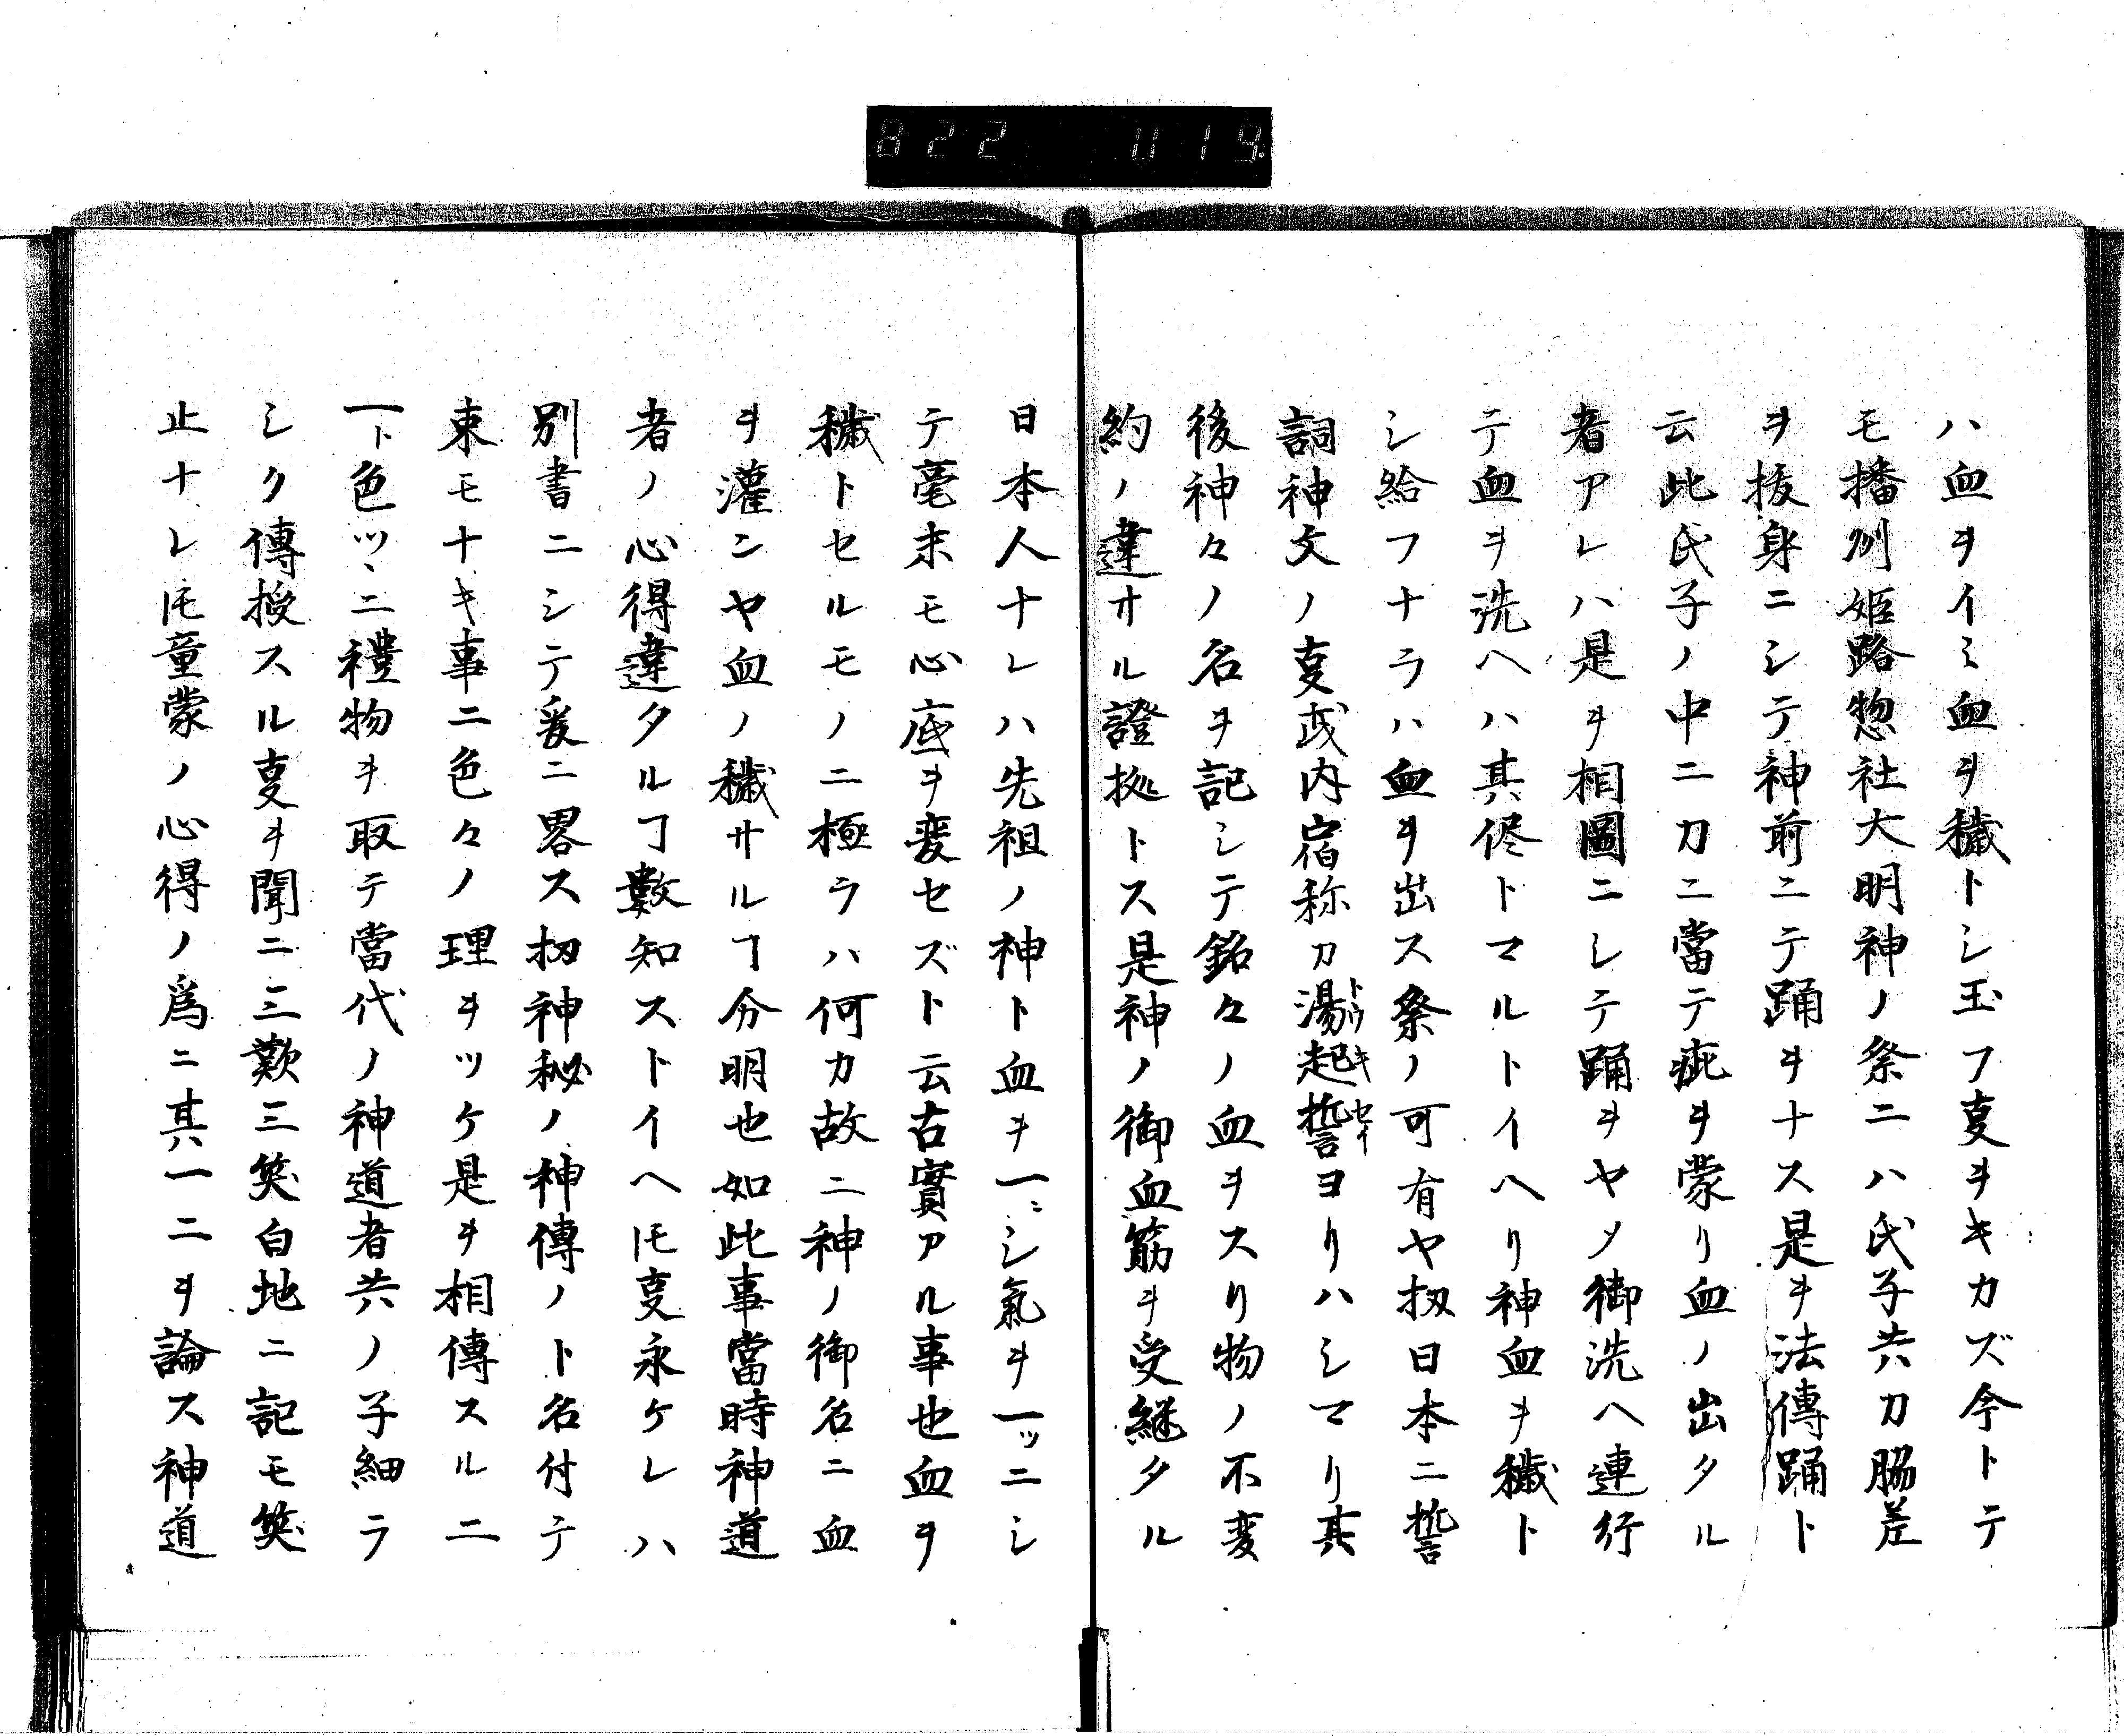 822 019
ハ血ヲイミ血ヲ穢トシ玉フ㕝ヲキカズ今トテ
モ播州姫路惣社大明神ノ祭ニハ氏子共刀脇差
ヲ抜身ニシテ神前ニテ踊ヲナス是ヲ法傳踊ト
云此氏子ノ中ニ刀ニ當テ疵ヲ蒙リ血ノ出タル
者アレハ是ヲ相圖ニシテ踊ヲヤメ御洗ヘ連行
テ血ヲ洗ヘハ其侭トマルトイヘリ神血ヲ穢ト
シ給フナラハ血ヲ出ス祭ノ可有ヤ扨日本ニ誓
詞神文ノ㕝武内宿称カ湯起誓ヨリハシマリ其
トウキセイ
後神々ノ名ヲ記シテ銘々ノ血ヲスリ物ノ不変
約ノ違サル證拠トス是神ノ御血筋ヲ受継タル
日本人ナレハ先祖ノ神ト血ヲ一ニシ氣ヲ一ッニシ
テ毫末モ心底ヲ変セズト云古實アル事也血ヲ
穢トセルモノニ極ラハ何カ故ニ神ノ御名ニ血
ヲ灌ンヤ血ノ穢サルヿ分明也如此事當時神道
者ノ心得違タルヿ數知ストイヘ𪜈㕝永ケレハ
別書ニシテ爰ニ畧ス扨神秘ノ神傳ノト名付テ
束モナキ事ニ色々ノ理ヲツケ是ヲ相傳スルニ
一ト色ツヽニ禮物ヲ取テ當代ノ神道者共ノ子細ラ
シク傳授スル㕝ヲ聞ニ三歎三笑白地ニ記モ笑
止ナレ𪜈童蒙ノ心得ノ爲ニ其一二ヲ論ス神道